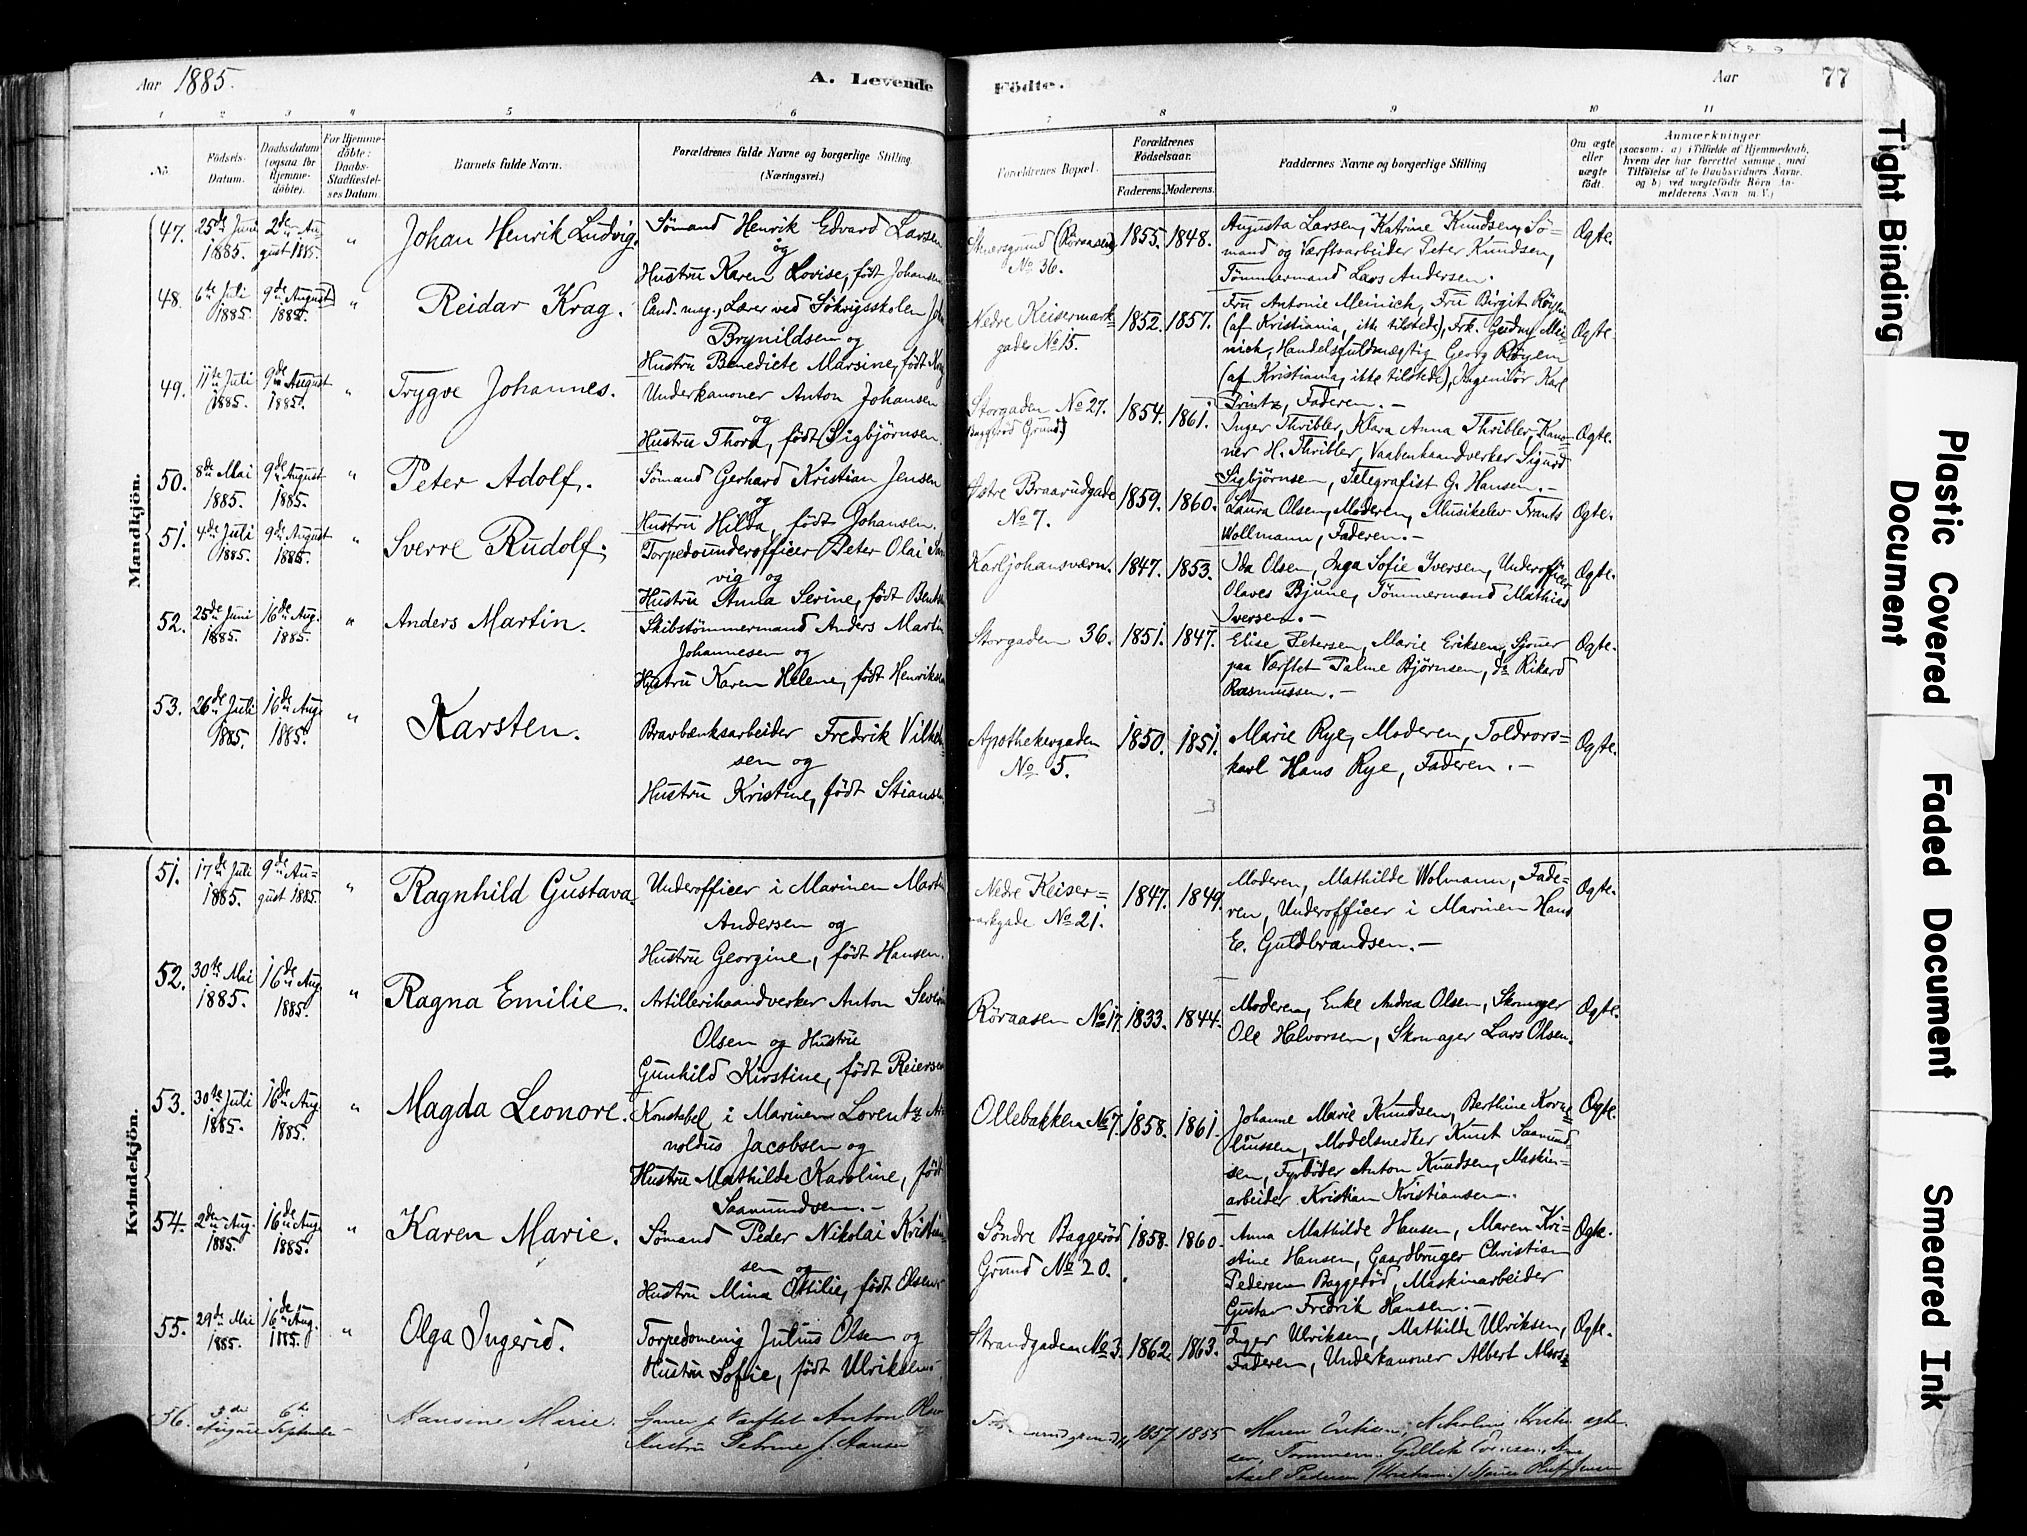 Aar 1885.
A. Levende
Födte.
Aar
77
1 2 3 4 5 6 7 8 9 10 11
No.
Födsels-
Datum.
Daabsdatum
(ogsaa for
Hjemme-
döbte).
For Hjemme-
döbte:
Daabs-
Stadfæstel-
ses Datum.
Barnets fulde Navn.
Forældrenes fulde Navne og borgerlige Stilling
(Næringsvei.)
Forældrenes Bopæl.
Forældrenes
Födselsaar.
Faderens. Moderens.
Faddernes Navne og borgerlige Stilling
Om ægte
eller
uægte
födt.
Anmærkninger
(saasom: a) i Tilfælde af Hjemmedaab,
hvem der har forrettet samme, med
Tilföielse af to Daabsvidners Navne,
og b) ved uægtefödte Börn An-
melderens Navn m. V.)
Mandkjön.
47. 25de Juni 1885. 2den August 1885. " Johan Henrik Ludvig.
Sömand Henrik Edvard Larsen
og
Hustru Karen Lovise, född Johansen
(Röraasen)
No 36.
1855. 1848.
Augusta Larsen, Katrine Knudsen, Sö-
mand og Værftsarbeider Peter Knudsen,
Tömmermand Lars Andersen.
Ægte.
48. 6te Juli 1885. 9de August 1885. " Reidar Krag.
Cand. mag., Lærer ved Sökrigsskolen John
Brynildsen og
Hustru Benedicte Marsine, född Krag
Nedre Keisermark-
gade No 15.
1852. 1857.
Fru Antonie Meinich, Fru Birgit Röyem
(af Kristiania, ikke tilstede), Frk. Gudny Mei-
nich, Handelsfuldmægtig Georg Röyem
(af Kristiania, ikke tilstede), Ingeniör Karl
Printz, Faderen.-
Ægte.
49. 11te Juli 1885. 9de August 1885. " Trygve Johannes.
Underkanoner Anton Johansen
og
Hustru Thora, född Sigbjörnsen.
Storgaden No 27.
(Baggeröd Grund.)
1854. 1861.
Inger Thribler, Klara Anna Thribler, Kano-
ner H. Thribler, Vaabenhaandverker Sigurd
Sigbjörnsen, Telegrafist G. Hansen.-
Ægte.
50. 8de Mai 1885. 9de August 1885. " Peter Adolf.
Sömand Gerhard Kristian Jensen
og
Hustru Hilda, född Johansen.
Östre Braarudgade
No 7.
1859. 1860.
Laura Olsen, Moderen, Musikelev Frants
Wollmann, Faderen.-
Ægte.
51. 4de Juli 1885. 9de August 1885. " Sverre Rudolf.
Torpedounderofficer Peter Olai
vig og
Hustru Anna Serine, född
Karljohansværn.
1847. 1853.
Ida Olsen, Inga Sofie Iversen, Underofficer
Olaves Bjune, Tömmermand Mathias
Iversen.-
Ægte.
52. 25de Juni 1885. 16de Aug. 1885. " Anders Martin.
Skibstömmermand Anders Martin
Johannesen og
Hustru Karen Helene, född Henriksen
Storgaden 36.
1851. 1847.
Elise Petersen, Marie Eriksen, Sjouer
paa Værftet Palme Björnsen, do Rikard
Rasmussen.-
Ægte.
53. 26de Juli 1885. 16de Aug. 1885. " Karsten.
Bravbænksarbeider Fredrik Vilhelm-
sen og
Hustru Kristine, född Stiansen
Apothekergaden
No 5.
1850. 1851.
Marie Rye, Moderen, Toldrors-
karl Hans Rye, Faderen.-
Ægte.
Kvindekjön.
51. 17de Juli 1885. 9de August 1885. " Ragnhild Gustava.
Underofficer i Marinen Martin
Andersen og
Hustru Georgine, född Hansen.
Nedre Keiser-
markgade No 21.
1847. 1849.
Moderen, Mathilde Wolmann, Fade-
ren, Underofficer i Marinen Hans
E. Guldbrandsen.-
Ægte.
52. 30te Mai 1885. 16de Aug. 1885. " Ragna Emilie.
Artillerihaandverker Anton Severin
Olsen og Hustru
Gunhild Kirstine, född Reiersen
Röraasen No 17.
1833. 1844.
Moderen, Enke Andrea Olsen, Skomager
Ole Halvorsen, Skomager Lars Olsen.
Ægte.
53. 30te Juli 1885. 16de Aug. 1885. " Magda Leonore.
Konstabel i Marinen Lorentz Ar-
noldus Jacobsen og
Hustru Mathilde Karoline, född
Saamundsen.-
Ollebakken No 7.
1858. 1861.
Johanne Marie Knudsen, Berthine Korne-
liussen, Modelsnedker Knut Saamund-
sen, Fyrböder Anton Knudsen, Maskin-
arbeider Kristian Kristiansen.
Ægte.
54. 2den Aug. 1885. 16de Aug. 1885. " Karen Marie.
Sömand Peder Nikolai Kristian-
sen og
Hustru Mina Ottilie, född Olsen
Söndre Baggeröd
Grund No 20.
1858. 1860.
Anna Mathilde Hansen, Maren Kri-
stine Hansen, Gaardbruger Christian
Pedersen Baggeröd, Maskinarbeider
Gustav Fredrik Hansen.-
Ægte.
55. 29de Mai 1885. 16de Aug. 1885. " Olga Ingerid.
Torpedomenig Julius Olsen og
Hustru Sofie, född Ulriksen.
Strandgaden No 3.
1862. 1863.
Inger Ulriksen, Mathilde Ulriksen,
Faderen, Underkanoner Albert
Ægte.
56. August 6te September Hansine Marie.
Sjouer p Værftet Anton Olsen
Hustru Petrine f. Hansen
1857 1855
Maren
Axel Pedersen
Tight Binding
Plastic Covered
Document
Faded Document
Smeared Ink